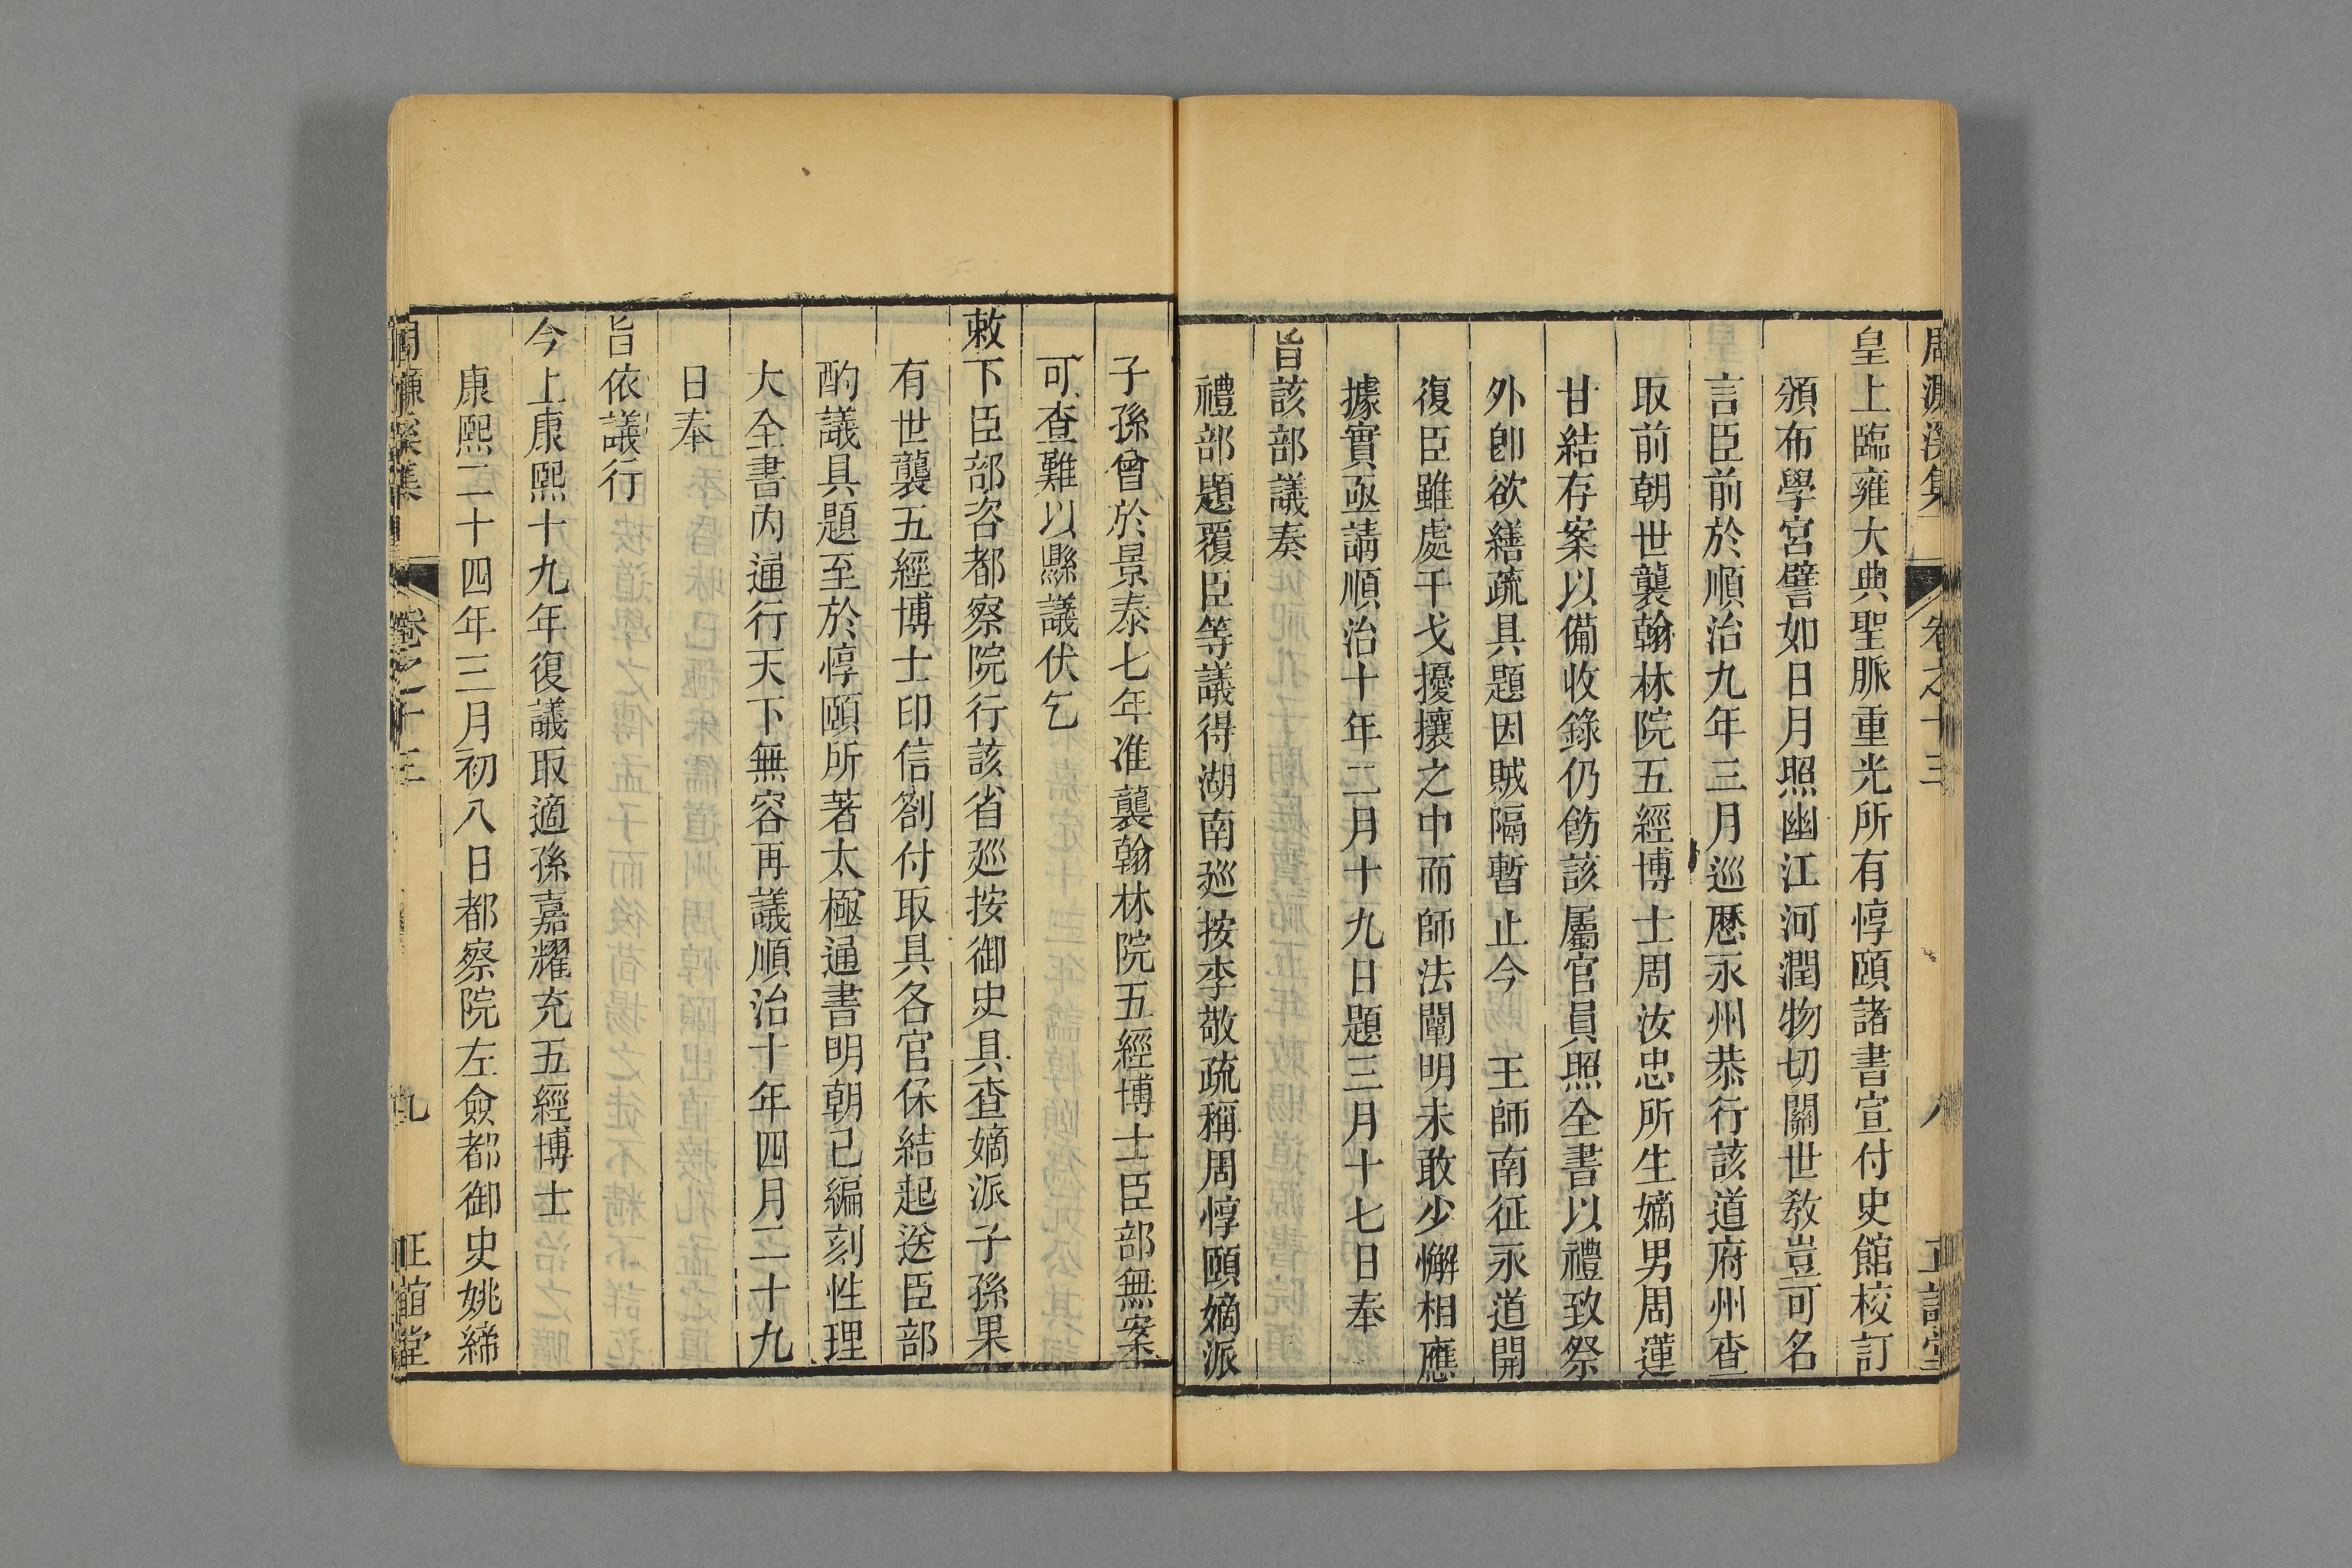 周濂溪集 卷之十三 八 正誼堂
皇上臨雍大典聖脈重光所有惇頤諸書宣付史館校訂
頒布學宮譬如日月照幽江河潤物切關世敎豈可名
言臣前於順治九年三月巡歷永州恭行該道府州查
取前朝世襲翰林院五經博士周汝忠所生嫡男周蓮
甘結存案以備收錄仍飭該屬官員照全書以禮致祭
外卽欲繕疏具題因賊隔暫止今　王師南征永道開
復臣雖處干戈擾攘之中而師法闡明未敢少懈相應
據實亟請順治十年二月十九日題三月十七日奉
旨該部議奏
禮部題覆臣等議得湖南廵按李敬疏稱周惇頤嫡派
子孫曾於景泰七年准襲翰林院五經博士臣部無案
可查難以懸議伏乞
敕下臣部咨都察院行該省廵按御史具查嫡派子孫果
有世襲五經博士印信劄付取具各官保結起送臣部
酌議具題至於惇頤所著太極通書明朝已編刻性理
大全書內通行天下無容再議順治十年四月二十九
日奉
旨依議行
今上康熙十九年復議取適孫嘉耀充五經博士
康熙二十四年三月初八日都察院左僉都御史姚締
周濂溪集 卷之十三 九 正誼堂